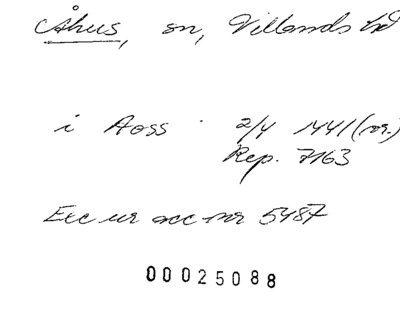 Åhus, sn, Villands hd
i Aoss 2/4 1441 (or.)
Rep. 7163
Exc ur acc nr 5487
00025088